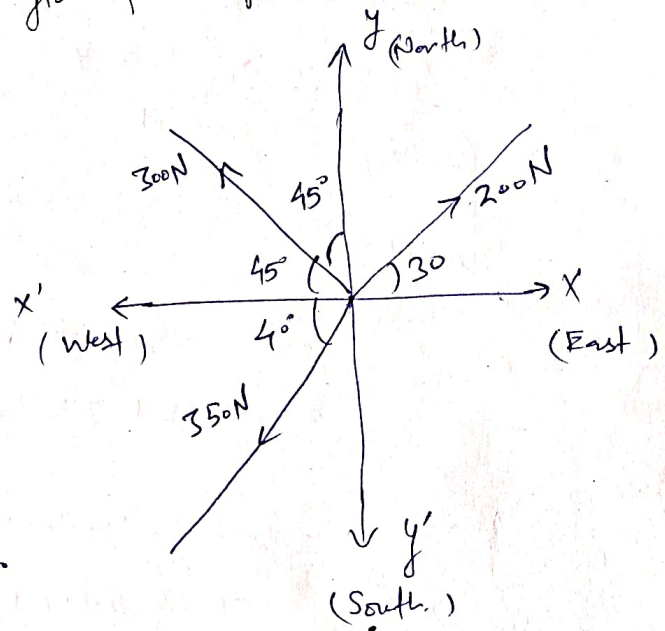 y
(North)
300N
45°
200N
45°
30
x'
X
(West)
40°
(East)
350N
y'
(South.)